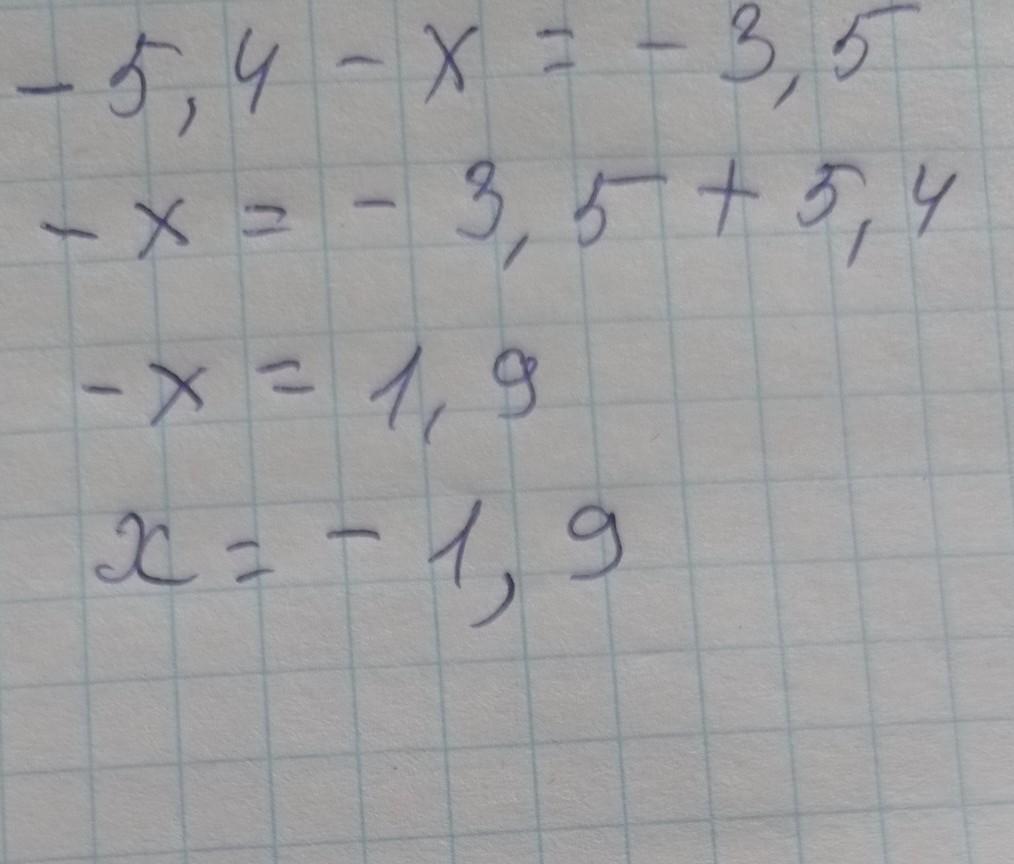 - 5,4 - x = - 3,5
- x = - 3,5 + 5,4
- x = 1,9
x = - 1,9